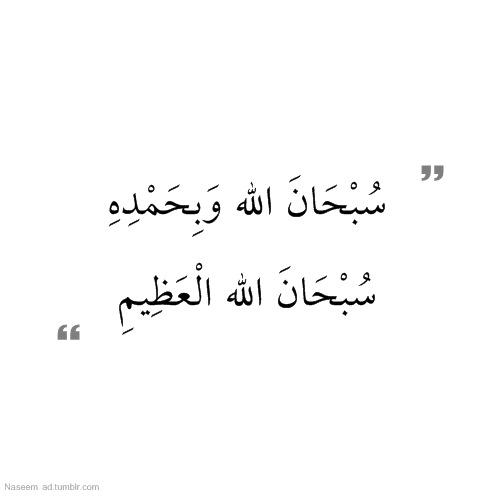 سُبْحَانَ الله وَبِحَمْدِهِ
سُبْحَانَ الله الْعَظِيمِ
Naseem ad.tumblr.com